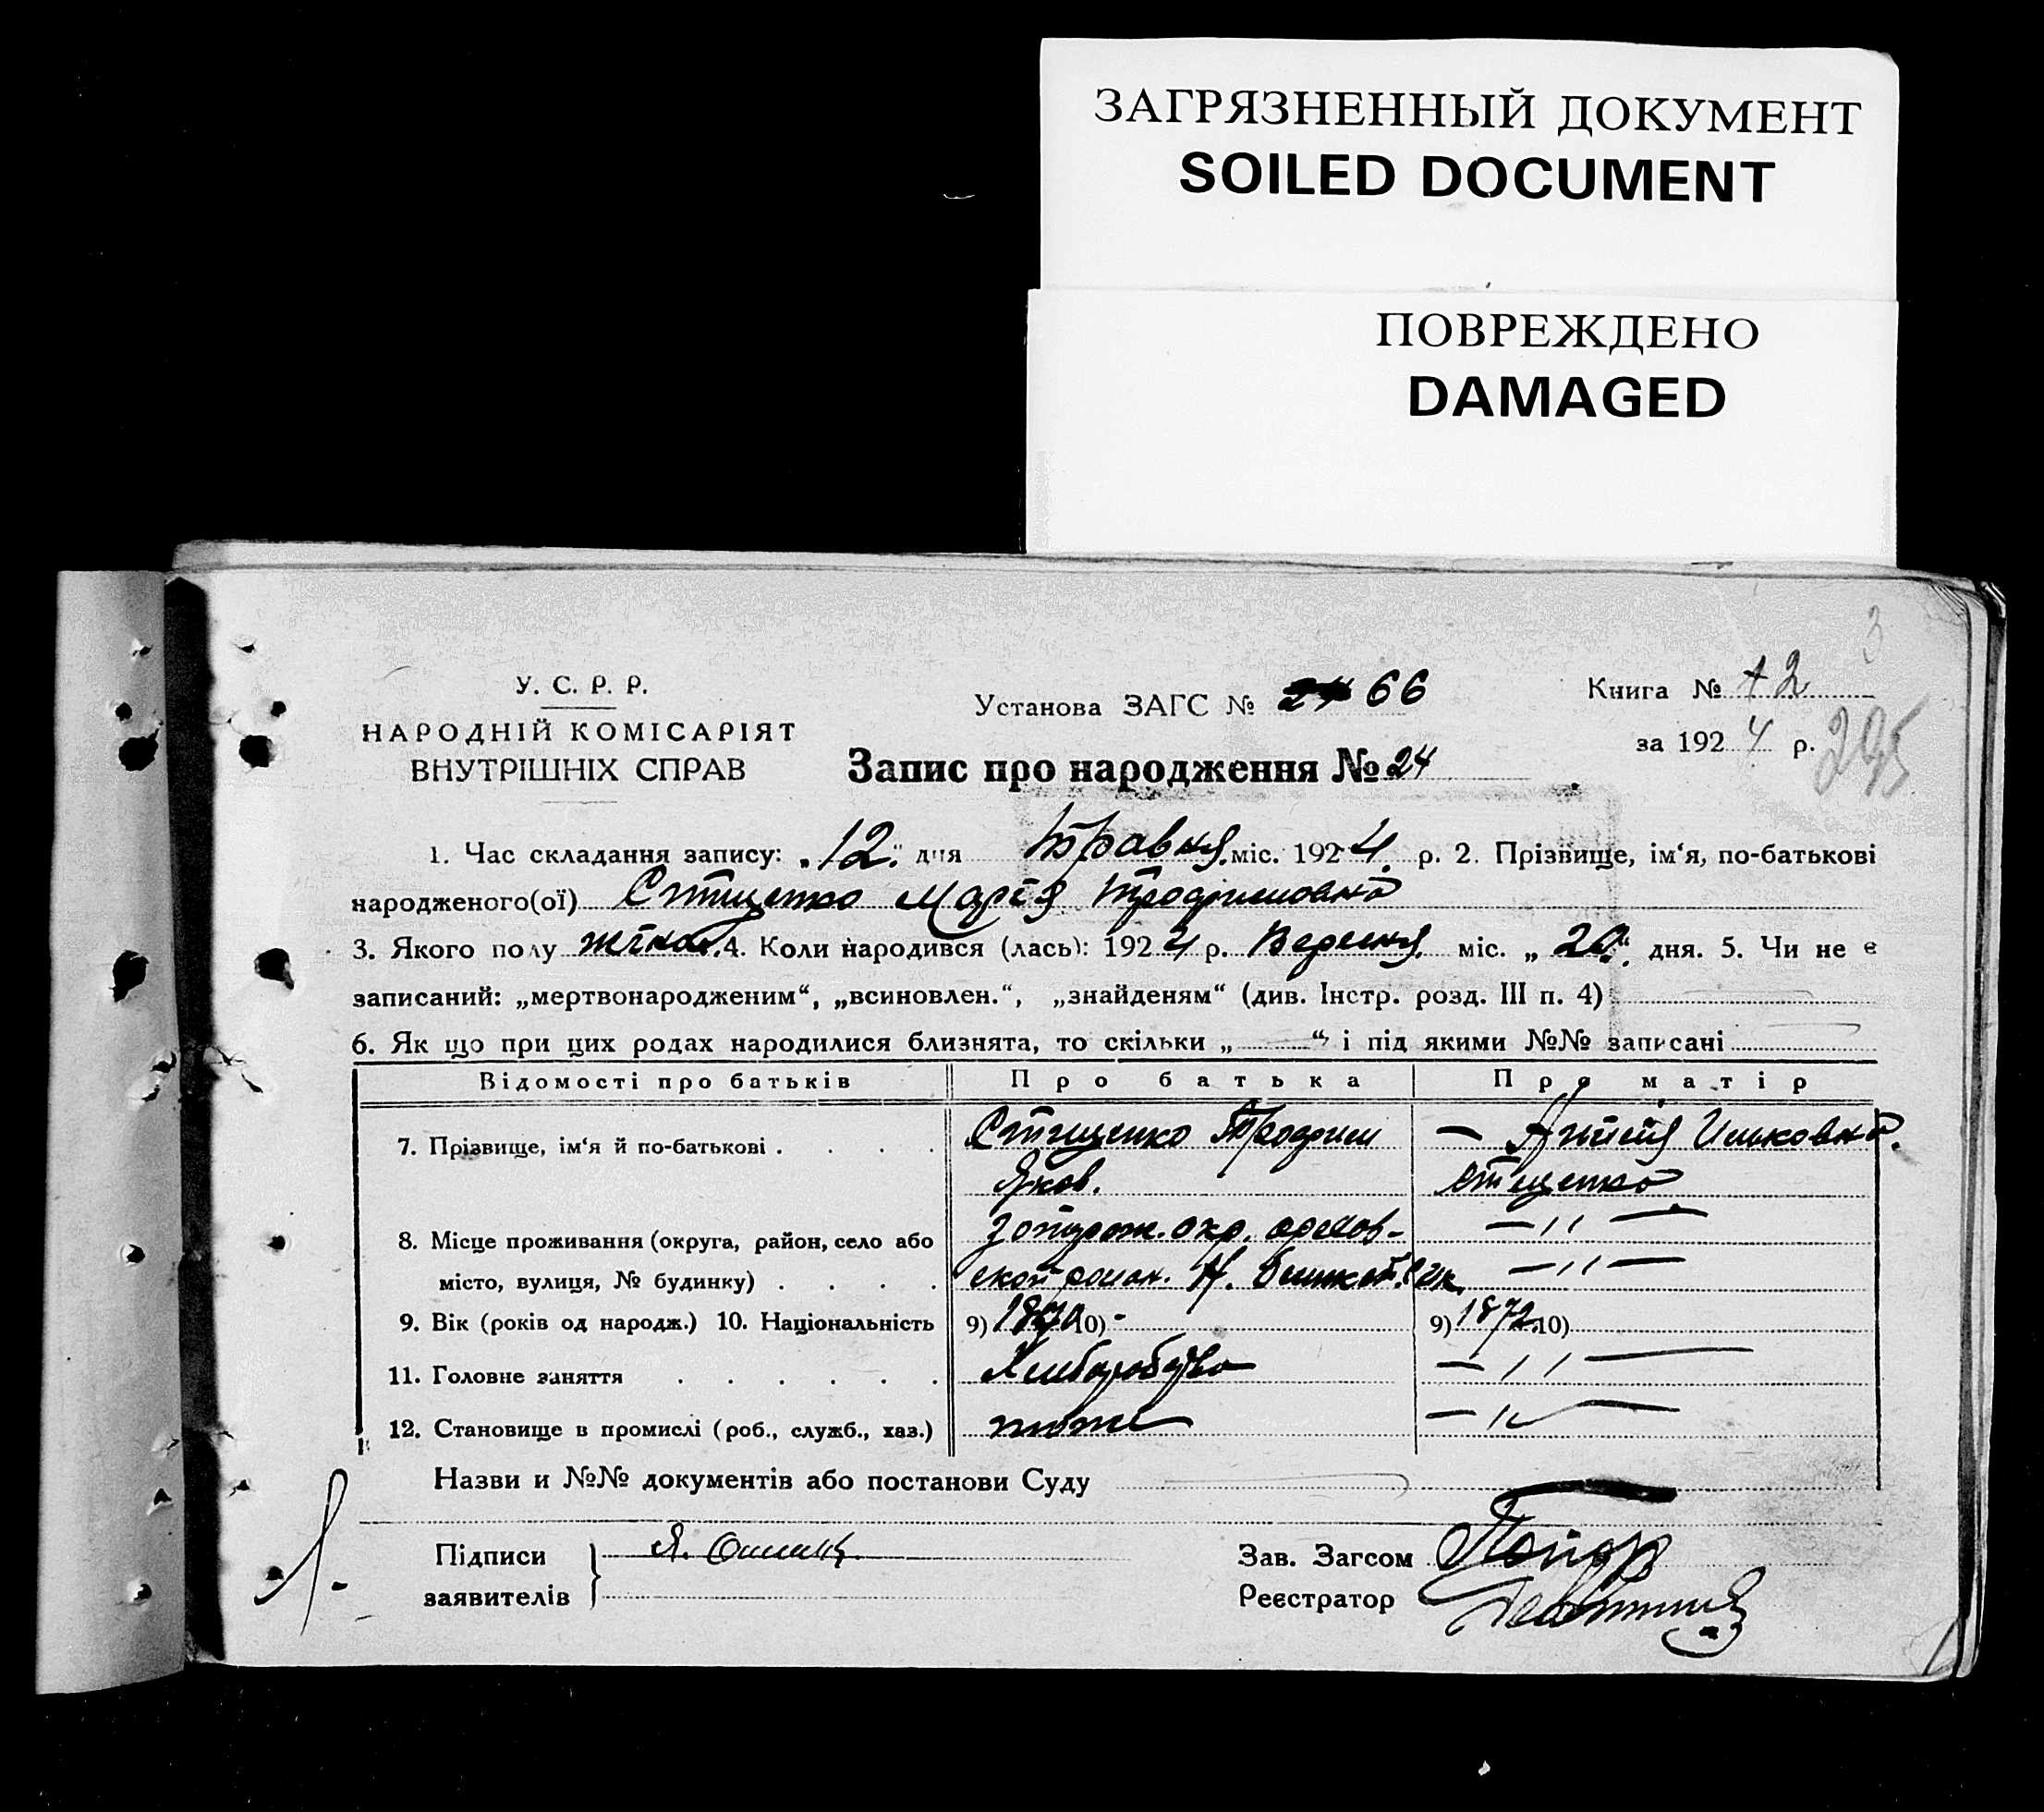 ЗАГРЯЗНЕННЫЙ ДОКУМЕНТ
SOILED DOCUMENT
ПОВРЕЖДЕНО
DAMAGED
3
У. С. Р. Р.
НАРОДНІЙ КОМІСАРІЯТ
ВНУТРІШНІХ СПРАВ
Установа ЗАГС № 66
Книга № 12
за 1924 р.
295
Запис про народження № 24
1. Час складання запису: „12“ дня Травня міс. 1924 р. 2. Прізвище, ім‘я, по-батькові
народженого(ої) Стищенко Марія Трофимовна
3. Якого полу 4. Коли народився (лась): 1924 р. Вересня міс. „20“ дня. 5. Чи не є
записаний: „мертвонародженим“, „всиновлен.“, „знайденям“ (див. Інстр. розд. III п. 4)
6. Як що при цих родах народилися близнята, то скільки „ “ і під якими №№ записані
Відомості про батьків Про батька Про матір
7. Прізвище, ім‘я й по-батькові Стищенко Трофим
Яков. Стищенко
8. Місце проживання (округа, район, село або
місто, вулиця, № будинку) район.
9. Вік (років од народж.) 10. Національність 9) 1870 10) - 9) 1872 10)
11. Головне заняття Хлиборобство — 〃 —
12. Становище в промислі (роб., служб., хаз.) тоже — 〃 —
Назви и №№ документів або постанови Суду
Підписи
заявителів
Зав. Загсом
Реєстратор